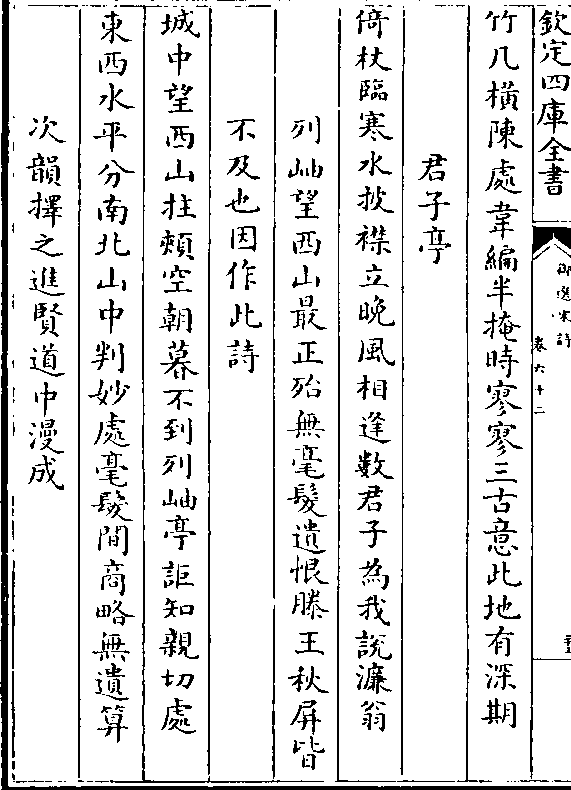 欽定四庫全書
御選宋詩
卷六十二
竹几橫陳處韋編半掩時寥寥三古意此地有深期
君子亭
倚杖臨寒水披襟立晚風相逢數君子為我說濂翁
列岫望西山最正殆無毫髮遺恨滕王秋屏皆
不及也因作此詩
城中望西山拄頰空朝暮不到列岫亭詎知親切處
東西水平分南北山中判妙處毫髮間商略無遺算
次韻擇之進賢道中漫成